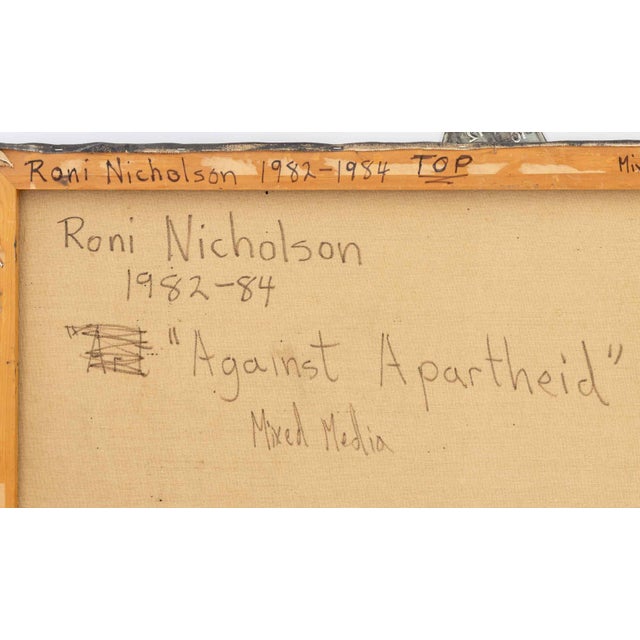 Roni Nicholson 1982-1984 TOP
Roni Nicholson
1982-84
"Against Apartheid"
Mixed Media